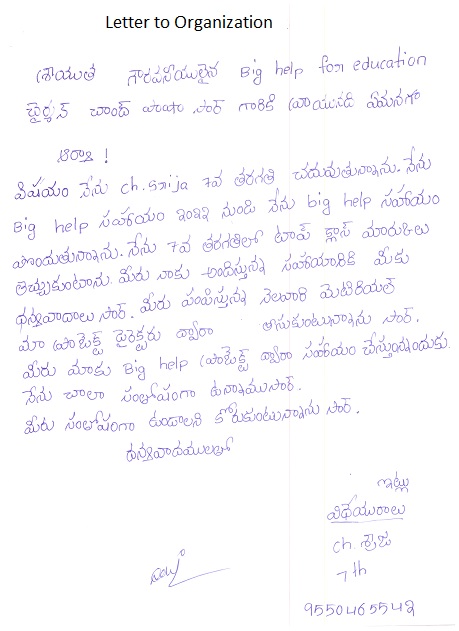 Letter to Organization
శ్రీయుత గౌరవనీయులైన Big help for education
ఛైర్మన్ చాంద్ పాషా సార్ గారికి వ్రాయునది ఏమనగా
ఆర్యా !
విషయం నేను ch. Srija 7వ తరగతి చదువుతున్నాను. నేను
Big help సహాయం నుండి నేను big help సహాయం
పొందుతున్నాను. నేను 7వ తరగతిలో టాప్ క్లాస్ మార్కులు
తెచ్చుకుంటాను. మీరు నాకు అందిస్తున్న సహాయానికి మీకు
ధన్యవాదాలు సార్. మీరు పంపిస్తున్న నెలవారి మెటిరియల్
మా ప్రాజెక్ట్ డైరెక్టరు ద్వారా అందుకుంటున్నాను సార్.
మీరు మాకు Big help ప్రాజెక్ట్ ద్వారా సహాయం చేస్తున్నందుకు
నేను చాలా సంతోషంగా ఉన్నాము సార్.
మీరు సంతోషంగా ఉండాలని కోరుకుంటున్నాను సార్.
ధన్యవాదములతో
ఇట్లు
విధేయురాలు
ch. శ్రీజ
7th
9550465542